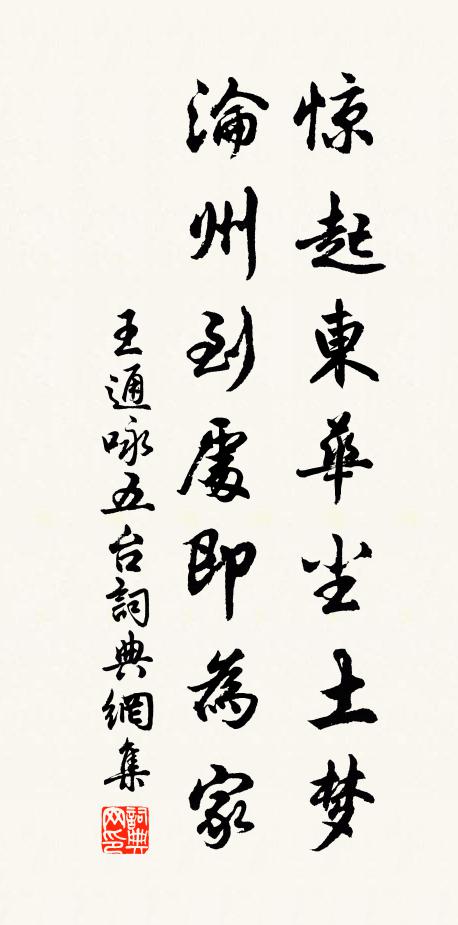 惊起東華尘土梦
淪州到處即為家
王通咏五台詞典網集
詞典网印